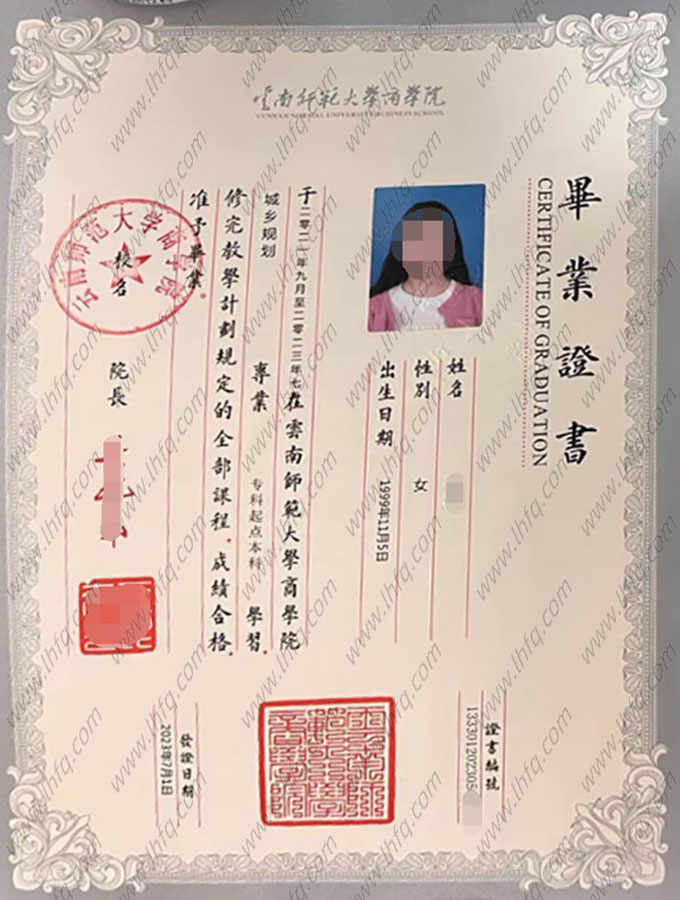 雲南師範大學商學院
YUNNAN NORMAL UNIVERSITY BUSINESS SCHOOL
畢業證書
CERTIFICATE OF GRADUATION
姓名
性別 女
出生日期 1999年11月5日
證書編號
133301202305
于二零二一年九月至二零二三年七在雲南師範大學商學院
城乡规划 專業 专科起点本科 學習.
修完教學計劃規定的全部課程.成績合格.
准予畢業.
云南师范大学商学院
校名
院長
發證日期
2023年7月1日
www.lhfq.com